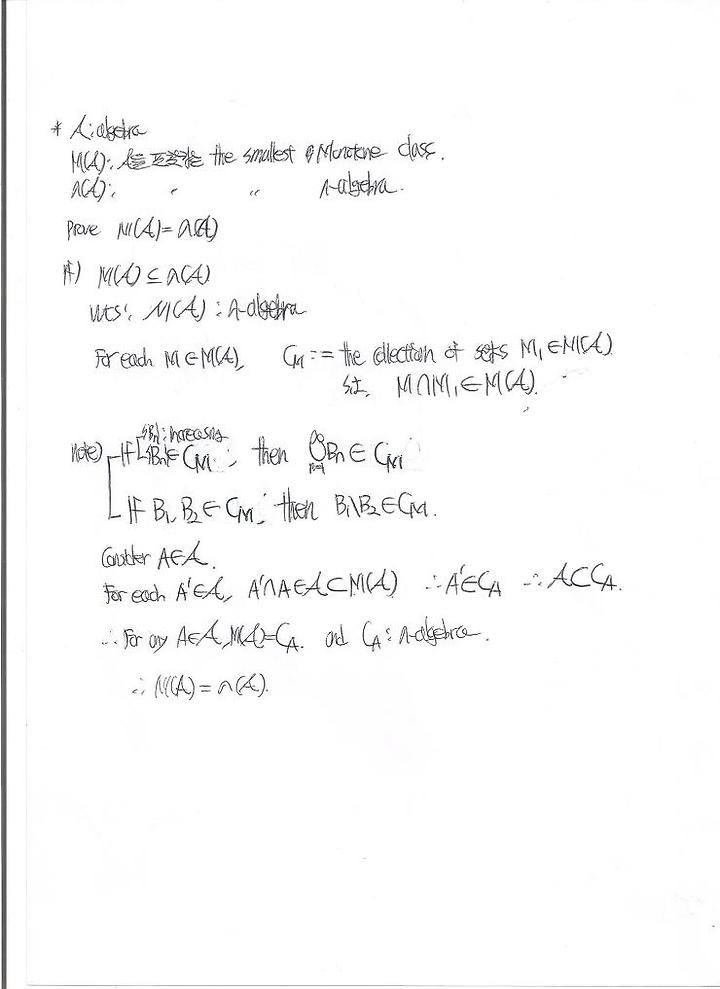 * 𝒜: algebra
M(𝒜): 𝒜를 포함하는 the smallest Monotone class.
σ(𝒜): 〃 〃 σ-algebra.
Prove M(𝒜)=σ(𝒜)
pf) M(𝒜) ⊆ σ(𝒜)
WTS: M(𝒜) : σ-algebra
For each M∈M(𝒜), C_M := the collection of sets M₁∈M(𝒜)
s.t. M∩M₁∈M(𝒜).
{Bn}: increasing
note) If {Bn}∈C_M, then ∞∪n=1 Bn ∈ C_M
If B₁, B₂ ∈ C_M, then B₁\B₂∈C_M.
Consider A∈𝒜.
For each A'∈𝒜, A'∩A∈𝒜⊂M(𝒜) ∴A'∈C_A ∴𝒜⊂C_A.
∴ For any A∈𝒜, M(𝒜)=C_A. and C_A: σ-algebra.
∴ M(𝒜) = σ(𝒜).